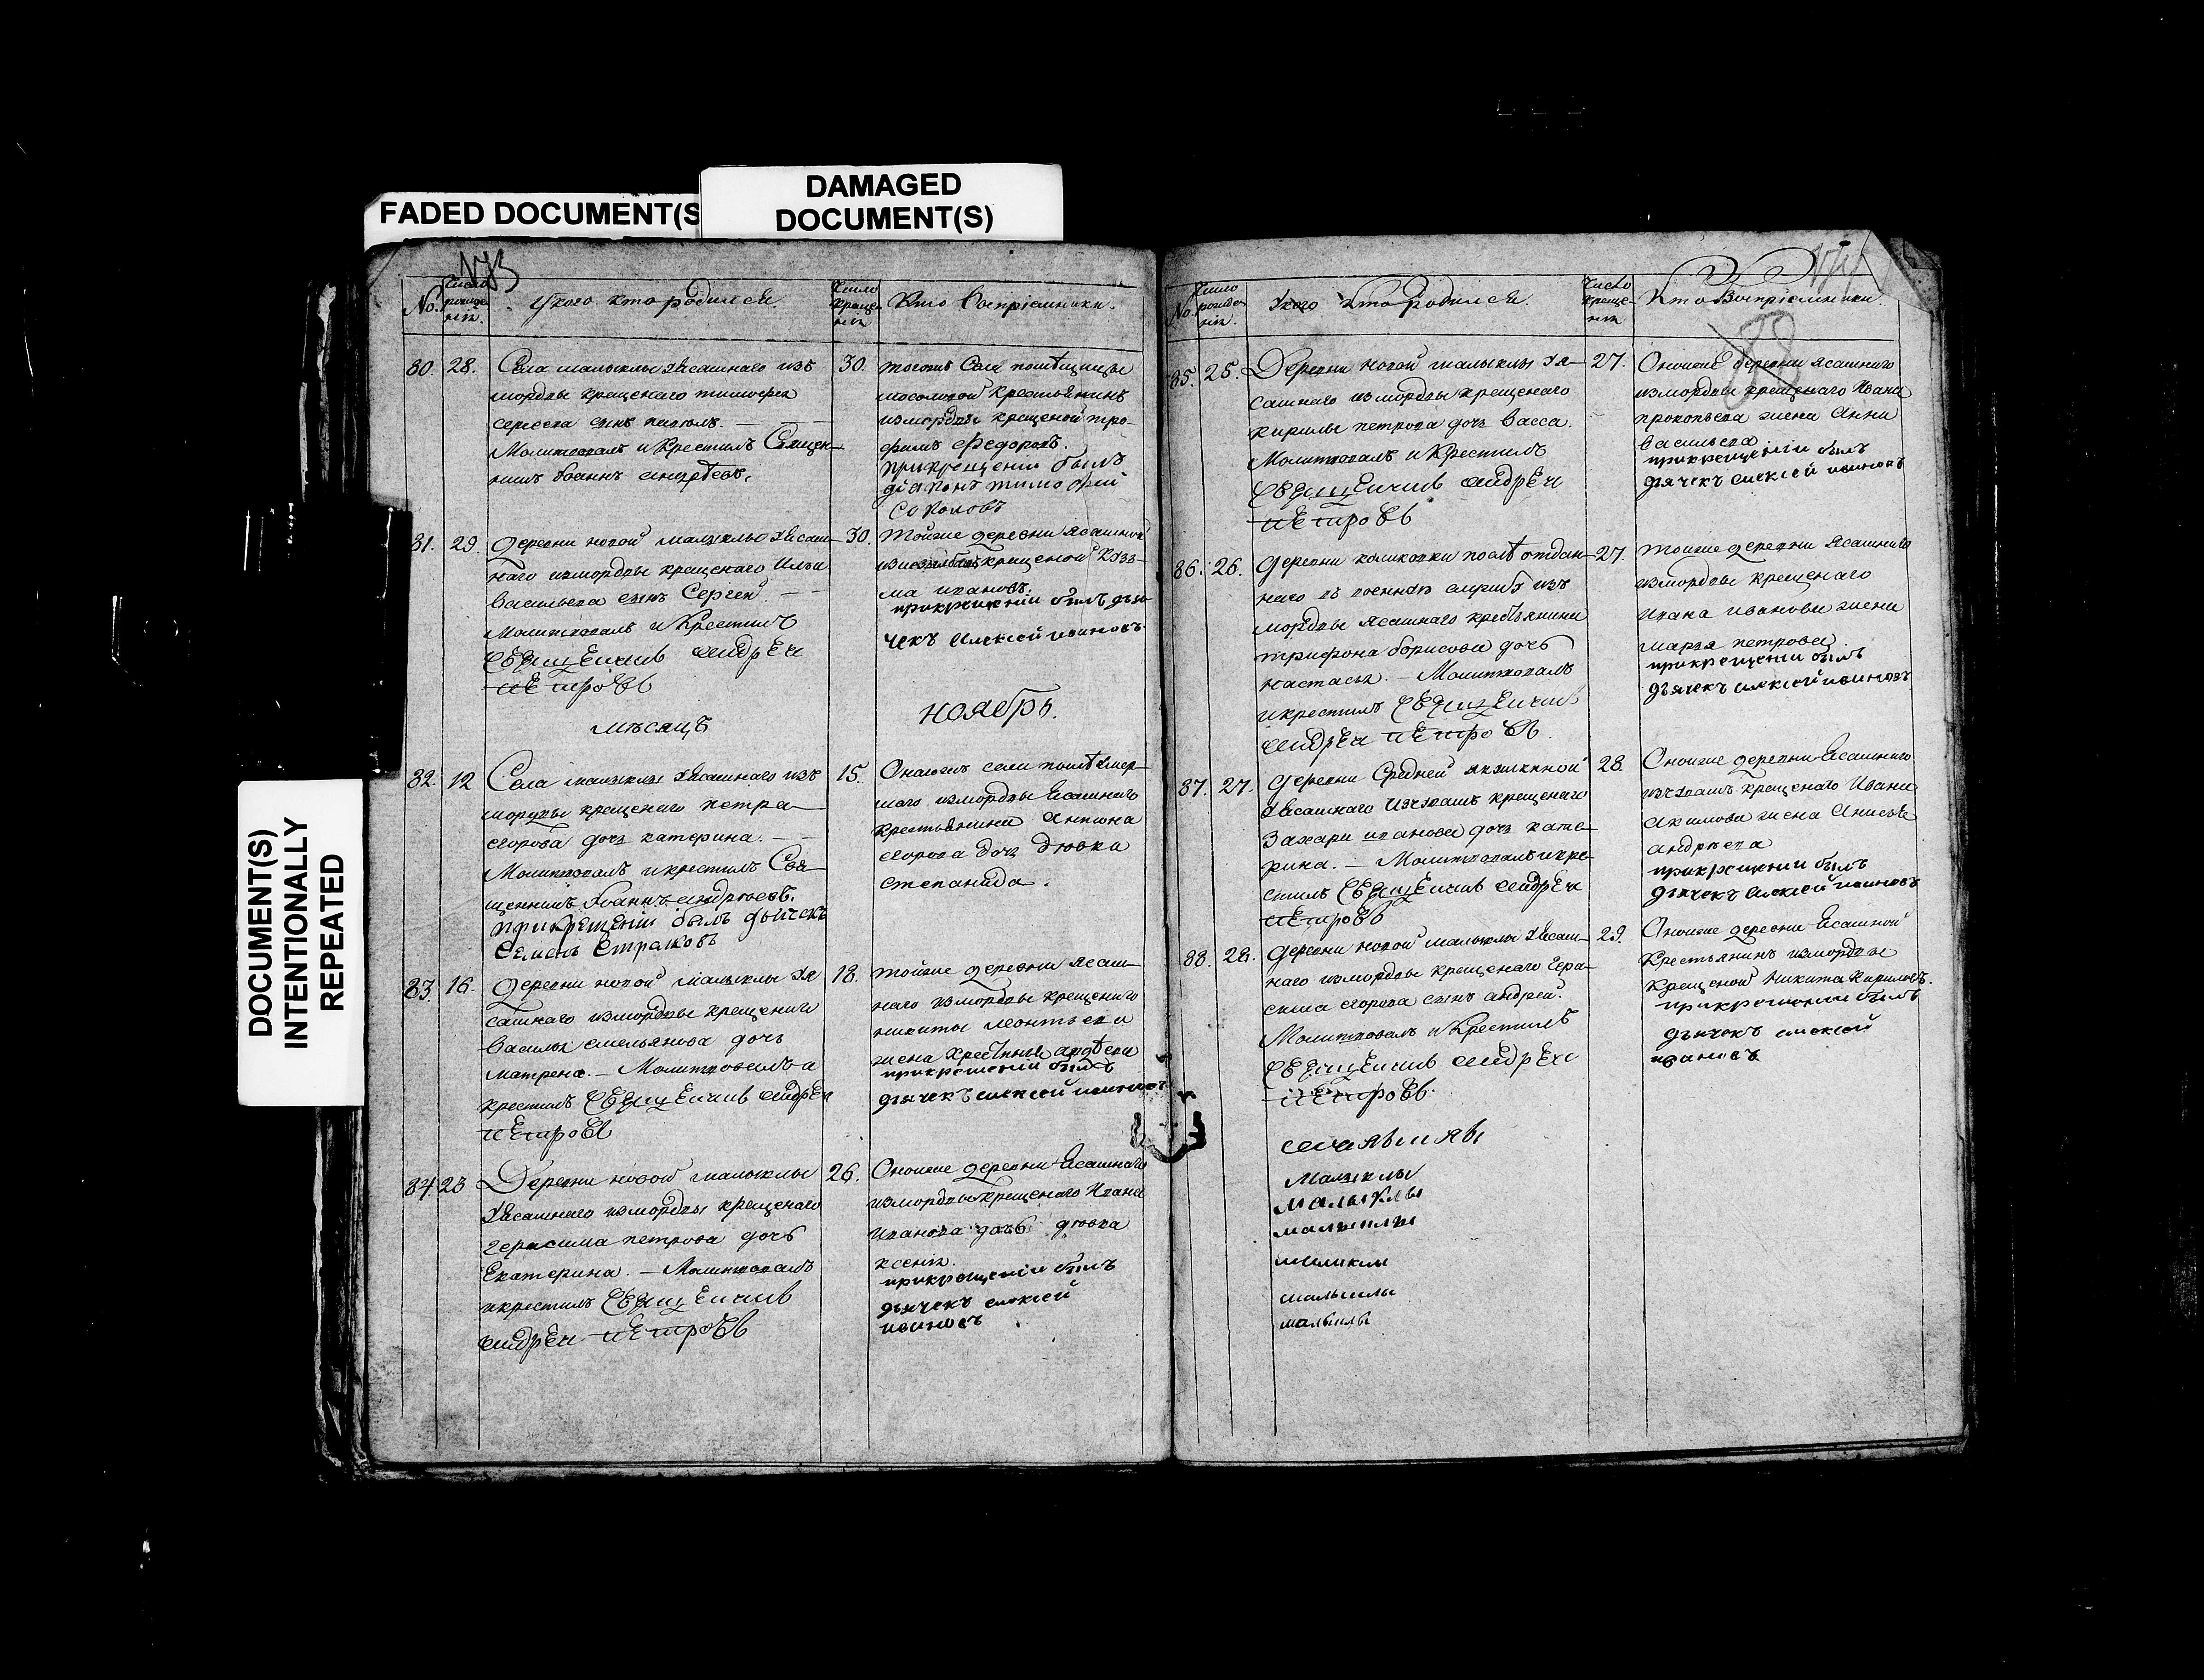 FADED DOCUMENT(S
DAMAGED
DOCUMENT(S)
DOCUMENT(S)
INTENTIONALLY
REPEATED
173
No.
Число рожденія.
У кого кто родился
Число крещенія
Кто Воспріемники.
80. 28.
Села малыклы Ясашнаго изъ
мордвы крещенаго тимофея
сергеева сынъ павелъ. —
Молитвовалъ и Крестилъ Священ-
никъ Іоаннъ андрѣевъ.
30.
тогожъ Села помѣщицы
крестьянинъ
измордвы крещеной тро-
фимъ Федоровъ.
прикрещении былъ
діаконъ тимофей
Соколовъ
81. 29.
Деревни новой малыклы Ясаш-
наго измордвы крещенаго Ильи
Васильева сынъ Сергей. —
Молитвовалъ и Крестилъ
Священникъ андрей
петровъ
30.
Тойже деревни ясашной
крещеной Козь-
ма ивановъ.
прикрещении былъ дья-
чекъ алексей ивановъ
мѣсяцъ
ноябрь.
82. 12
Села малыклы Ясашнаго изъ
мордвы крещенаго петра
егорова дочь катерина. —
Молитвовалъ икрестилъ Свя-
щенникъ Іоаннъ андреевъ.
прикрещении былъ дьячекъ
Семенъ Страховъ
15.
Онагожъ села
измордвы Ясашнаго
крестьянина Антона
егорова дочь дѣвка
степанида.
83. 16.
Деревни новой малыклы Яса
сашнаго измордвы крещенаго
Василья емельянова дочь
матрена. — Молитвовалъ и
крестилъ Священникъ андрей
петровъ
18.
тойже деревни ясаш-
наго измордвы крещенаго
никиты леонтьева
жена
прикрещении былъ
дьячекъ алексей ивановъ
84. 23
Деревни новой малыклы
Ясашнаго измордвы крещенаго
герасима петрова дочь
Екатерина. — Молитвовалъ
икрестилъ Священникъ
андрей петровъ
26.
Оноиже деревни Ясашнаго
измордвы крещенаго Ивана
Иванова дочь дѣвка
ксенія.
прикрещении былъ
дьячекъ алексей
ивановъ
No.
Число рожденія.
У кого кто родился.
Число крещенія
Кто Воспріемники.
88
85. 25.
Деревни новой малыклы Яса-
сашнаго измордвы крещенаго
кирилы петрова дочь васса.
Молитвовалъ и Крестилъ
Священникъ андрей
петровъ
27.
Оноиже деревни ясашнаго
измордвы крещенаго Ивана
прокопьева жена Анна
васильева
прикрещении былъ
дьячекъ алексей ивановъ
86. 26.
Деревни послѣ отдан-
наго въ военную службу изъ
мордвы ясашнаго крестьянина
трифона борисова дочь
настасья. — Молитвовалъ
икрестилъ Священникъ
андрей петровъ.
27.
тойже деревни Ясашнаго
измордвы крещенаго
Ивана иванова жена
марья петрова
прикрещении былъ
дьячекъ алексей ивановъ
87. 27.
деревни Средней
Ясашнаго Изчувашъ крещенаго
Захара иванова дочь кате-
рина. — Молитвовалъ икре-
стилъ Священникъ андрей
петровъ
28.
Оноиже деревни Ясашнаго
изчувашъ крещенаго Ивана
акимова жена Анисья
андрѣева
прикрещении былъ
дьячекъ алексей ивановъ
88. 28.
Деревни новой малыклы Ясаш-
наго измордвы крещенаго Гера-
сима егорова сынъ андрей.
Молитвовалъ и Крестилъ
Священникъ андрей
петровъ.
29.
Оноиже деревни Ясашной
Крестьянинъ измордвы
Крещеной Никита Кириловъ.
прикрещении былъ
дьячекъ алексей
ивановъ
Малыклы
малыклы
малыклы
малыклы
малыклы
малыклы